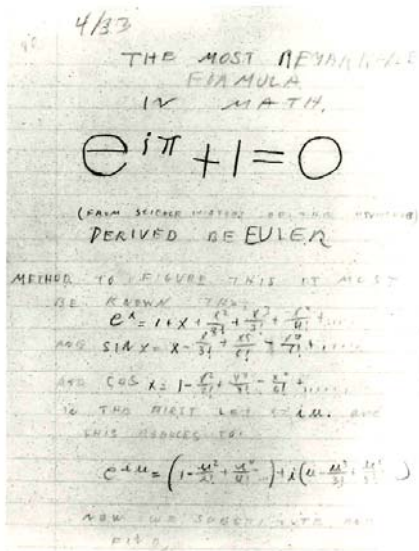 4/33
THE MOST REMARKABLE
FORMULA
IN MATH.
e^{iπ} + 1 = 0
(FROM SCIENCE HISTORY OF THE
DERIVED BE EULER
METHOD TO FIGURE THIS IT MUST
BE KNOWN THAT
e^x = 1 + x + x²/2! + x³/3! + x⁴/4! + ....
AND SIN X = X - x³/3! + x⁵/5! - x⁷/7! + ....
AND COS X = 1 - x²/2! + x⁴/4! - x⁶/6! + .....
IN THE FIRST LET X = iu. AND
THIS REDUCES TO:
e^{iu} = (1 - u²/2! + u⁴/4! ...) + i(u - u³/3! + u⁵/5! ...)
NOW WE SUBSTITUTE AND
FIND